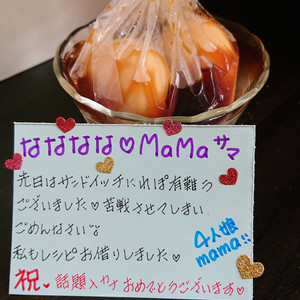 ななななな♡MaMaサマ
先日はサンドイッチにれぽ有難う
ございました♡苦戦させてしまい
ごめんなさい💦
私もレシピお借りしました♡
祝♥話題入りおめでとうございます♡
4人娘
mama!!